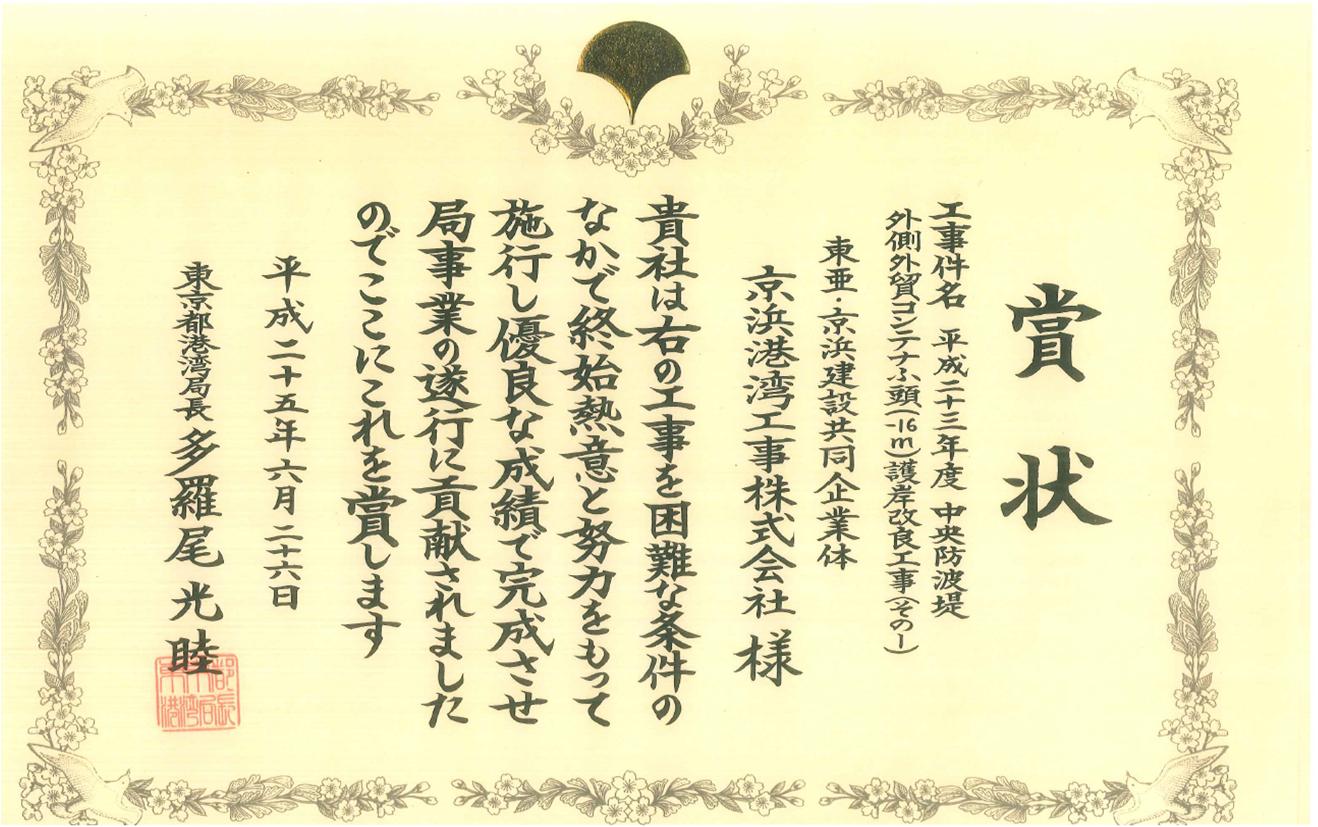 賞状
工事件名 平成二十三年度 中央防波堤
外側外貿コンテナふ頭(-16m)護岸改良工事(その一)
東亜・京浜建設共同企業体
京浜港湾工事株式会社 様
貴社は右の工事を困難な条件の
なかで終始熱意と努力をもって
施行し優良な成績で完成させ
局事業の遂行に貢献されました
のでここにこれを賞します
平成二十五年六月二十六日
東京都港湾局長 多羅尾光睦
東京都
港湾局長